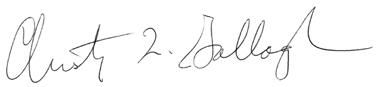 Christy L. Gallagh